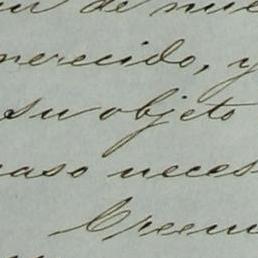 de nue
merecido, y
su objeto
caso neces
Creem